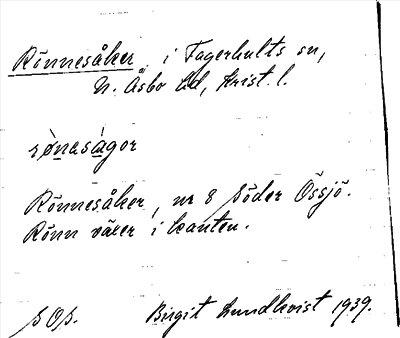 Rönnesåker i Fagerhults sn,
N. Åsbo hd, Krist. l.
rö̀nasågor
Rönnesåker, nr 8 Söder Össjö.
Rönn växer i kanten.
SOS. Birgit Lundkvist 1939.